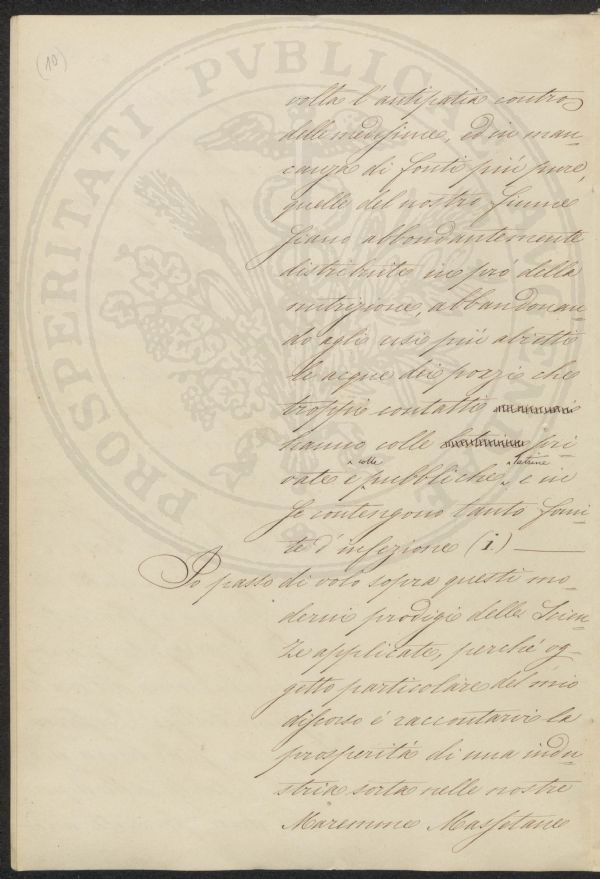 (10)
volta l'antipatia contro
delle medesime, ed in man-
canza di fonti più pure,
quelle del nostro fiume
siano abbondantemente
distribuite in pró della
nutrizione, abbandonan-
do agli usi più abietti
le acque dei pozzi che
troppi contatti
hanno colle pri-
vate e colle pubbliche latrine, e in
se contengono tanta fon-
te d'infezione (i.)
Io passo di volo sopra questi mo-
derni prodigi delle Scien-
ze applicate, perché og-
getto particolare del mio
discorso é raccontarvi la
prosperitá di una indu-
stria sorta nelle nostre
Maremme Massetane
PROSPERITATI PVBLICAE